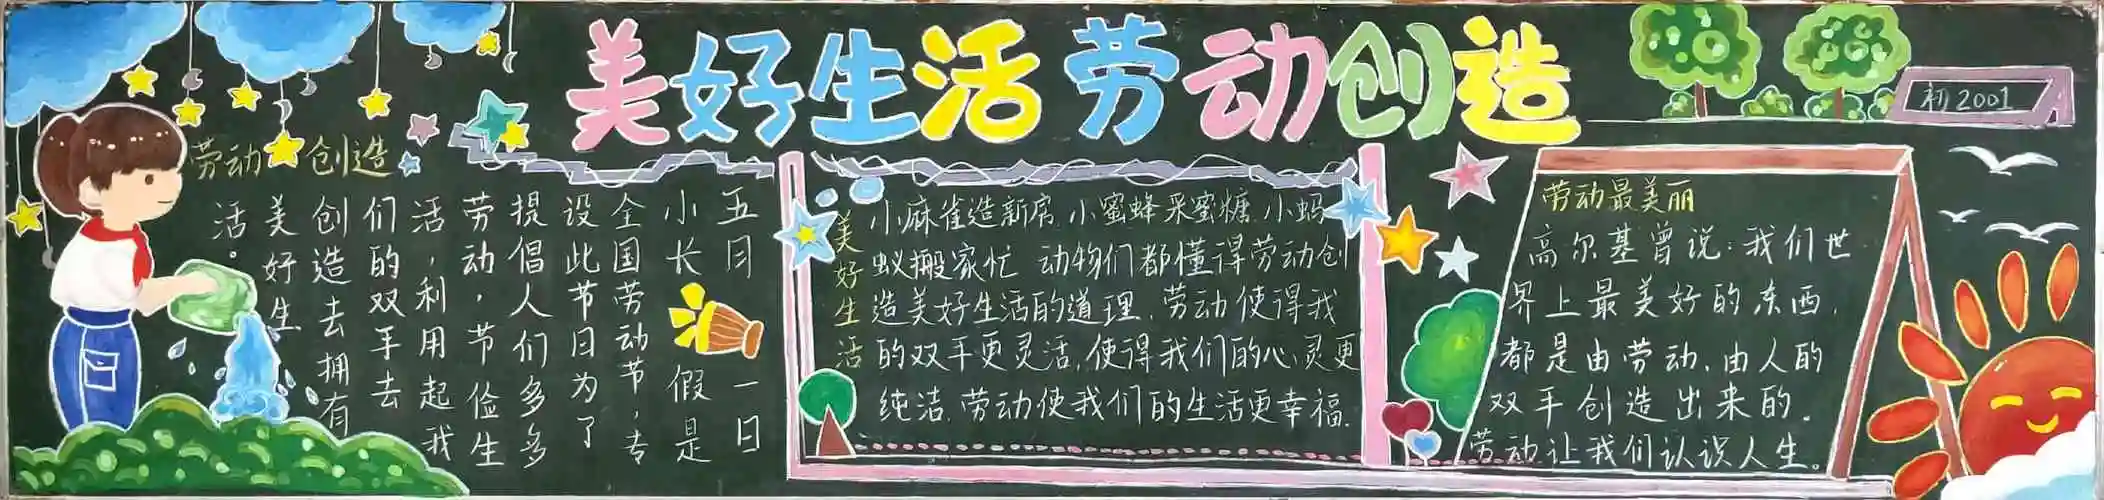 美好生活 劳动创造
初2001
劳动 创造
五月一日
小长假是
全国劳动节,专
设此节日为了
提倡人们多多
劳动,节俭生
活,利用起我
们的双手去
创造去拥有
美好生
活。
美好生活
小麻雀造新房,小蜜蜂采蜜糖,小蚂
蚁搬家忙,动物们都懂得劳动创
造美好生活的道理,劳动使得我
的双手更灵活,使得我们的心灵更
纯洁,劳动使我们的生活更幸福.
劳动最美丽
高尔基曾说:我们世
界上最美好的东西,
都是由劳动,由人的
双手创造出来的。
劳动让我们认识人生。